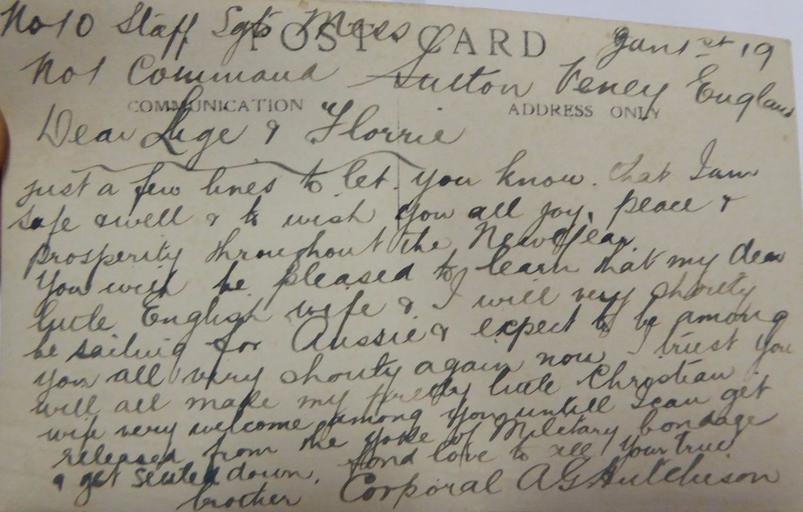 No 10 Staff Sgts Mess
POST CARD
Jan 1st 19
No 1 Command Sutton Veney England
COMMUNICATION
ADDRESS ONLY
Dear Lige & Florrie
just a few lines to let you know that I am
safe & well & to wish you all joy, peace &
prosperity throughout the New Year.
You will be pleased to learn that my dear
little English wife & I will very shortly
be sailing for Aussie & expect to be among
you all very shortly again now I trust you
will all make my pretty little Christian
wife very welcome among you untill I can get
released from the yoke of Military bondage
& get settled down. fond love to all your true
brother Corporal A G Hutchison